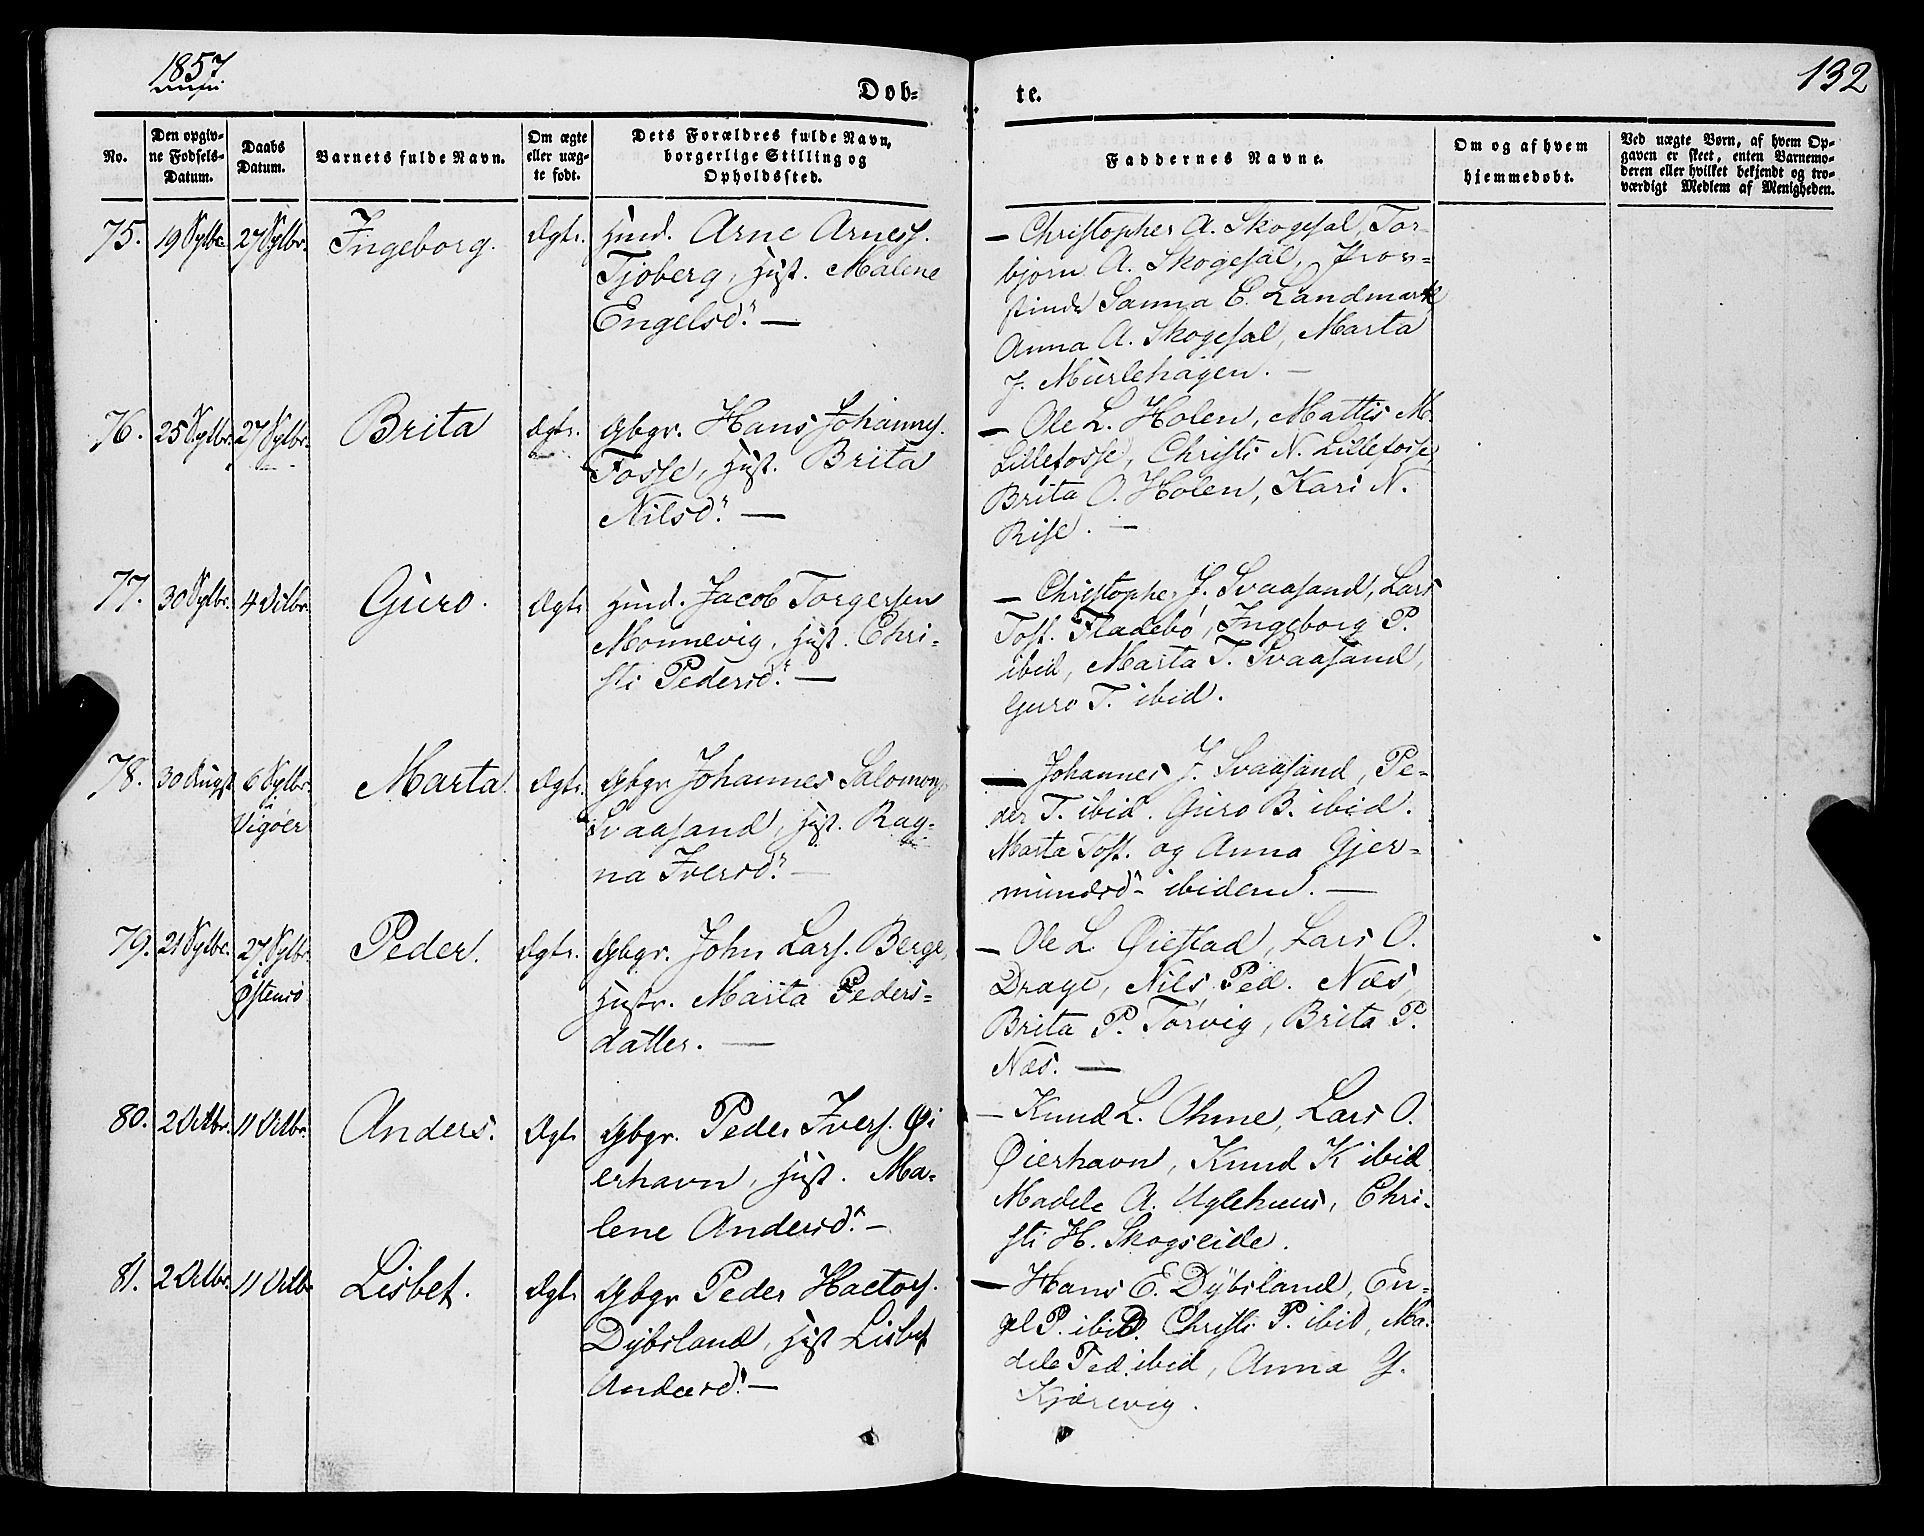 1857
132
Døb-
te.
No.
Den opgiv-
ne Fødsels-
Datum.
Daabs
Datum.
Barnets fulde Navn.
Om ægte
eller uæg-
te født.
Dets Forældres fulde Navn,
borgerlige Stilling og
Opholdssted.
Faddernes Navne.
Om og af hvem
hjemmedøbt.
Ved uægte Børn, af hvem Op-
gaven er skeet, enten Barnemo-
deren eller hvilket bekjendt og tro-
værdigt Medlem af Menigheden.
75. 19 Sptbr. 27 Sptbr. Ingeborg. Ægte Hmd. Arne Arness.
Tjoberg, Hust. Malene
Engelsd. —
— Christopher A. Skogesal, Tor-
bjørn A. Skogesal, Prov-
stinde Sanna E. Landmark
Anna A. Skogesal, Marta
J. Murlehagen. —
76. 25 Sptbr. 27 Sptbr. Brita Ægte. Gbgr. Hans Johanness.
Fosse, Hust. Brita
Nilsd. —
— Ole L. Holen, Mattis M.
Lillefosse, Christi N. Lillefosse,
Brita O. Holen, Kari N.
Rise. —
77. 30 Sptbr. 4 Octbr. Guro. Ægte Hmd. Jacob Torgersen
Monnevig, Hust. Chri-
sti Pedersd. —
— Christopher J. Svaasand, Lars
Tost. Fladebø, Ingeborg P.
ibid, Marta T. Svaasand,
Guro T. ibid.
78. 30 Augst 6 Sptbr.
i
Vigøer Marta. Ægte. Gbgr. Johannes Salomons.
Svaasand, Hust. Rag-
na Iversd. —
— Johannes J. Svaasand, Pe-
der T. ibid. Guro B. ibid.
Marta Tost. og Anna Gjer-
mundsd. ibidem. —
79. 21 Sptbr. 27 Sptbr.
i
Østensø Peder. Ægte. Gbgr. John Lars. Berge,
Hustr. Marta Peders-
datter. —
— Ole L. Øiestad, Lars O.
Drage, Nils Ped. Næs,
Brita P. Torvig, Brita P.
Næs. —
80. 2 Octbr. 11 Octbr. Anders. Ægte Gbgr. Peder Ivers. Øi
erhavn, Hust. Ma-
lene Andersd. —
— Knud L. Ohme, Lars O.
Øierhavn, Knud K ibid
Madele A. Uglehuus, Chri-
sti H. Skogseide.
81. 2 Octbr. 11 Octbr Lisbet. Ægte Gbgr Peder Hactors.
Dybsland, Hust Lisbet
Andersd. —
— Hans E. Dybsland, En-
gel P. ibid. Christi P. ibid, Ma-
dele Ped. ibid, Anna G.
Kjærevig.